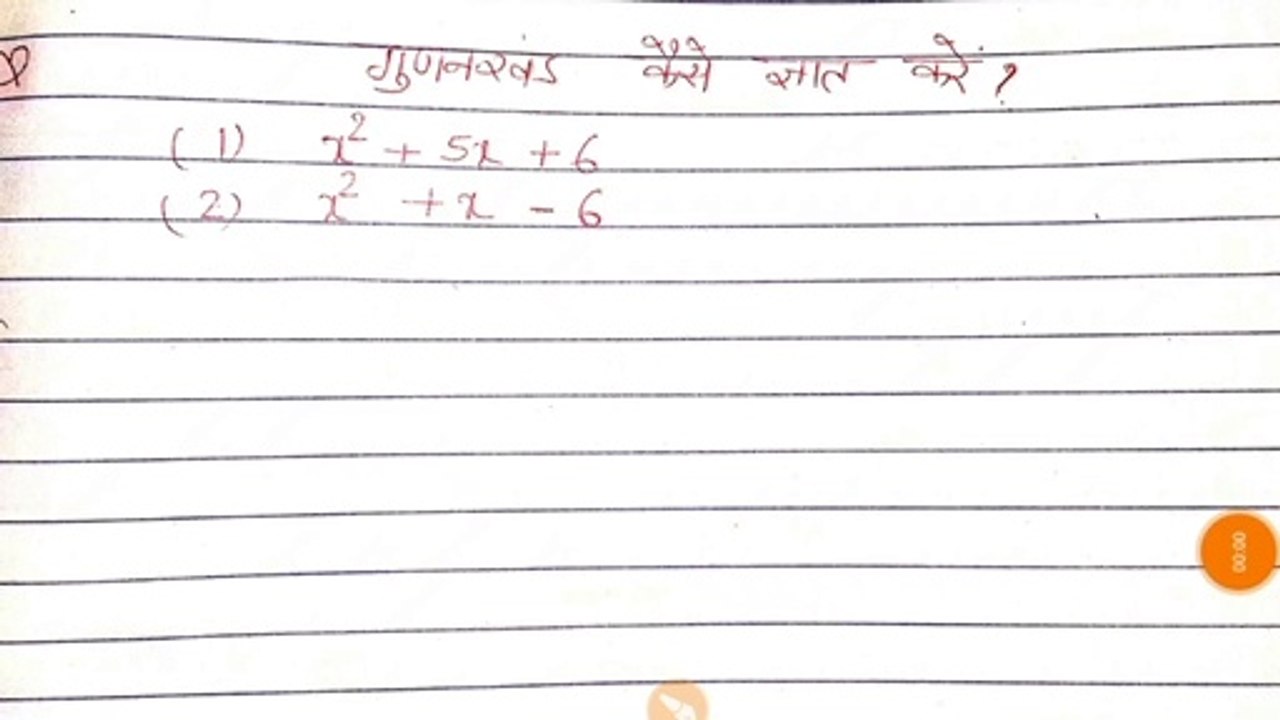 गुणनखंड कैसे ज्ञात करें ?
(1) x² + 5x + 6
(2) x² + x - 6
00:00